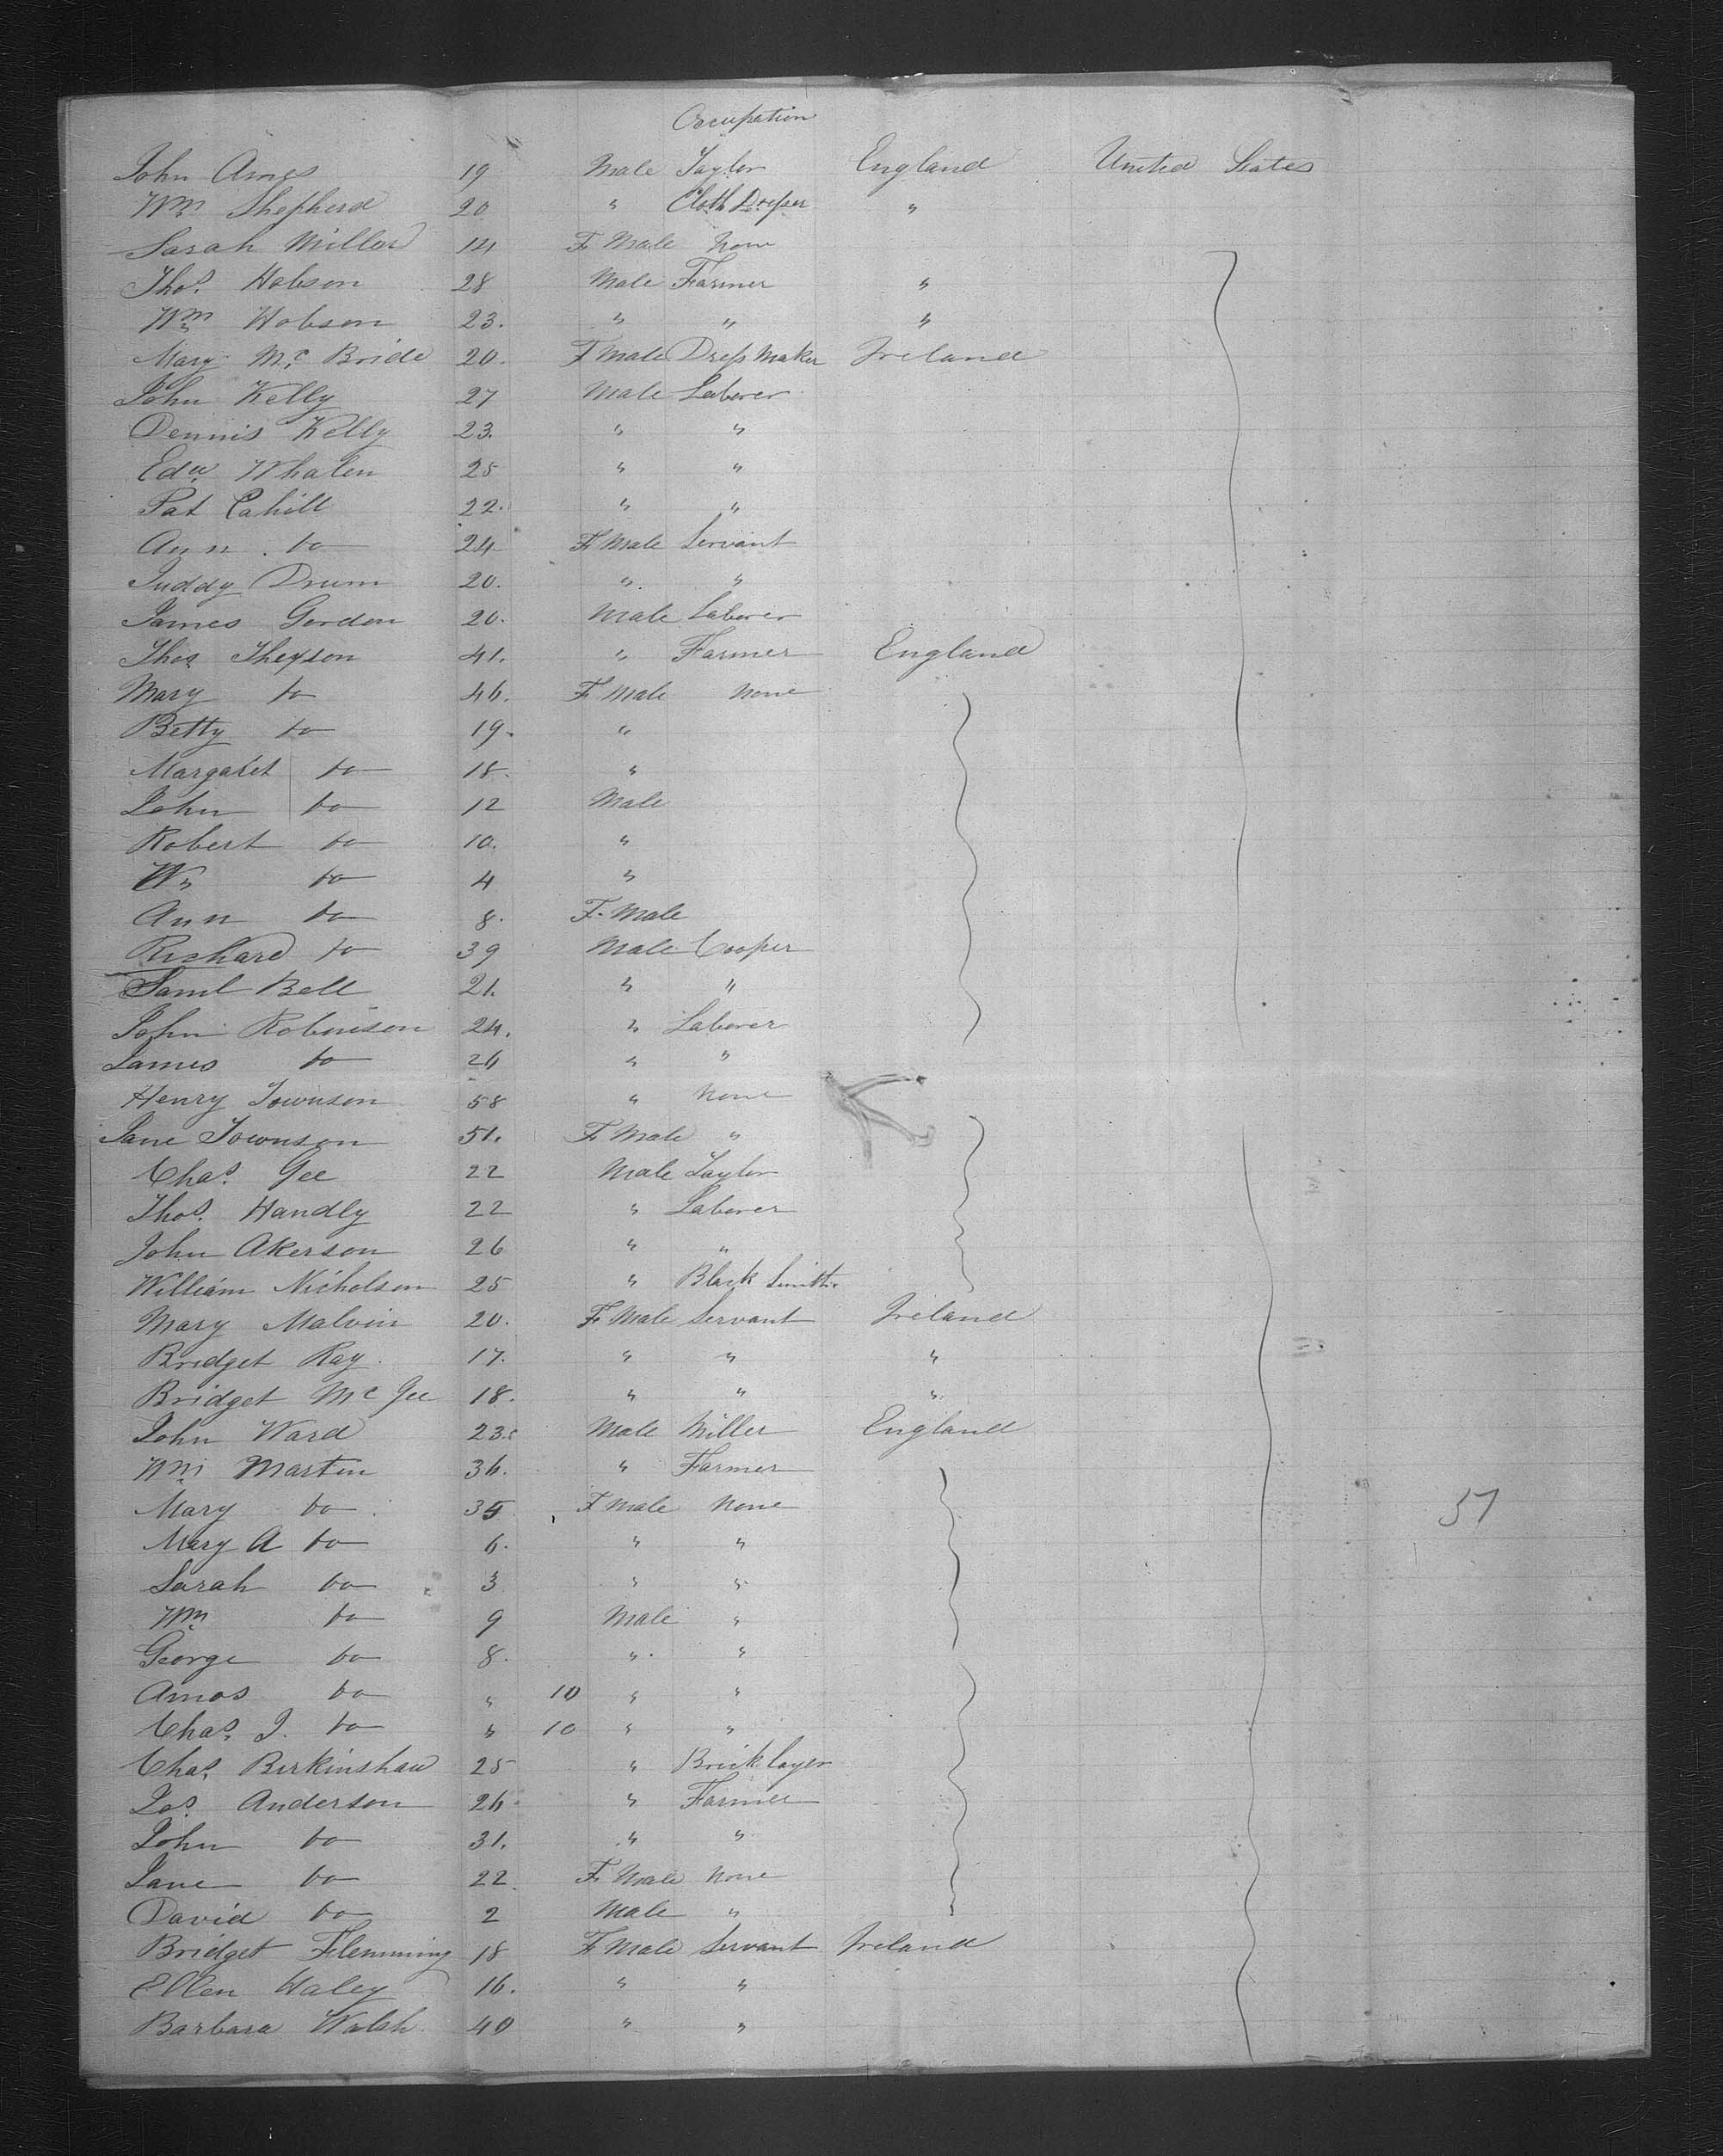 Occupation
John Ames 19 Male Taylor England United States
Wm Shepherd 20 " Cloth Dresser "
Sarah Miller 14 F Male None
Thos. Hobson 28 Male Farmer "
Wm Hobson 23. " " "
Mary Mc Bride 20. F Male Dress Maker Ireland
John Kelly 27 Male Laborer
Dennis Kelly 23. " "
Edw. Whalen 25 " "
Pat Cahill 22. " "
Ann do 24 F Male Servant
Juddy Drum 20. " "
James Gordon 20. Male Laborer
Thos 41. " Farmer England
Mary do 46. F Male None
Betty do 19. "
Margaret do 18. "
John do 12 Male
Robert do 10. "
Wm do 4 "
Ann do 8. F. Male
Richard do 39 Male Cooper
Saml Bell 21. " "
John Robinson 24. " Laborer
James do 26 " "
Henry Townson 58 " None
Jane Townson 51. F Male "
Chas. Gee 22 Male Taylor
Thos. Handly 22 " Laborer
John Akerson 26 " "
William Nicholson 25 " Black Smith
Mary Malvin 20. F Male Servant Ireland
Bridget Ray 17. " " "
Bridget Mc Gee 18. " " "
John Ward 23. Male Miller England
Wm Martin 36. " Farmer
Mary do 35 F Male None
Mary A do 6. " "
Sarah do 3 " "
Wm do 9 Male "
George do 8. " "
Amos do " 10 " "
Chas. J. do " 10 " "
Chas. Birkinshaw 25 " Brick layer
Jos. Anderson 26 " Farmer
John do 31. " "
Jane do 22. F Male None
David do 2 Male "
Bridget Flemming 18 F Male Servant Ireland
Ellen Haley 16. " "
Barbara Walsh 40 " "
57